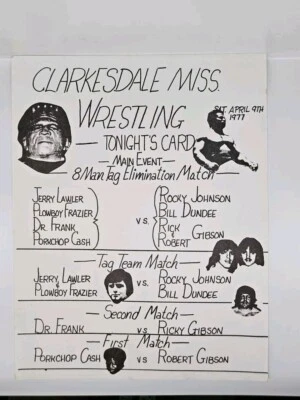 CLARKESDALE MISS.
WRESTLING
SAT. APRIL 9TH
1977
— TONIGHT'S CARD
— MAIN EVENT —
— 8 Man Tag Elimination Match —
JERRY LAWLER
PLOWBOY FRAZIER
DR. FRANK
PORKCHOP CASH
V.S.
ROCKY JOHNSON
BILL DUNDEE
RICK
&
ROBERT
GIBSON
— Tag Team Match —
JERRY LAWLER
PLOWBOY FRAZIER
V.S.
ROCKY JOHNSON
BILL DUNDEE
— Second Match —
DR. FRANK V.S RICKY GIBSON
— First Match —
PORKCHOP CASH VS ROBERT GIBSON